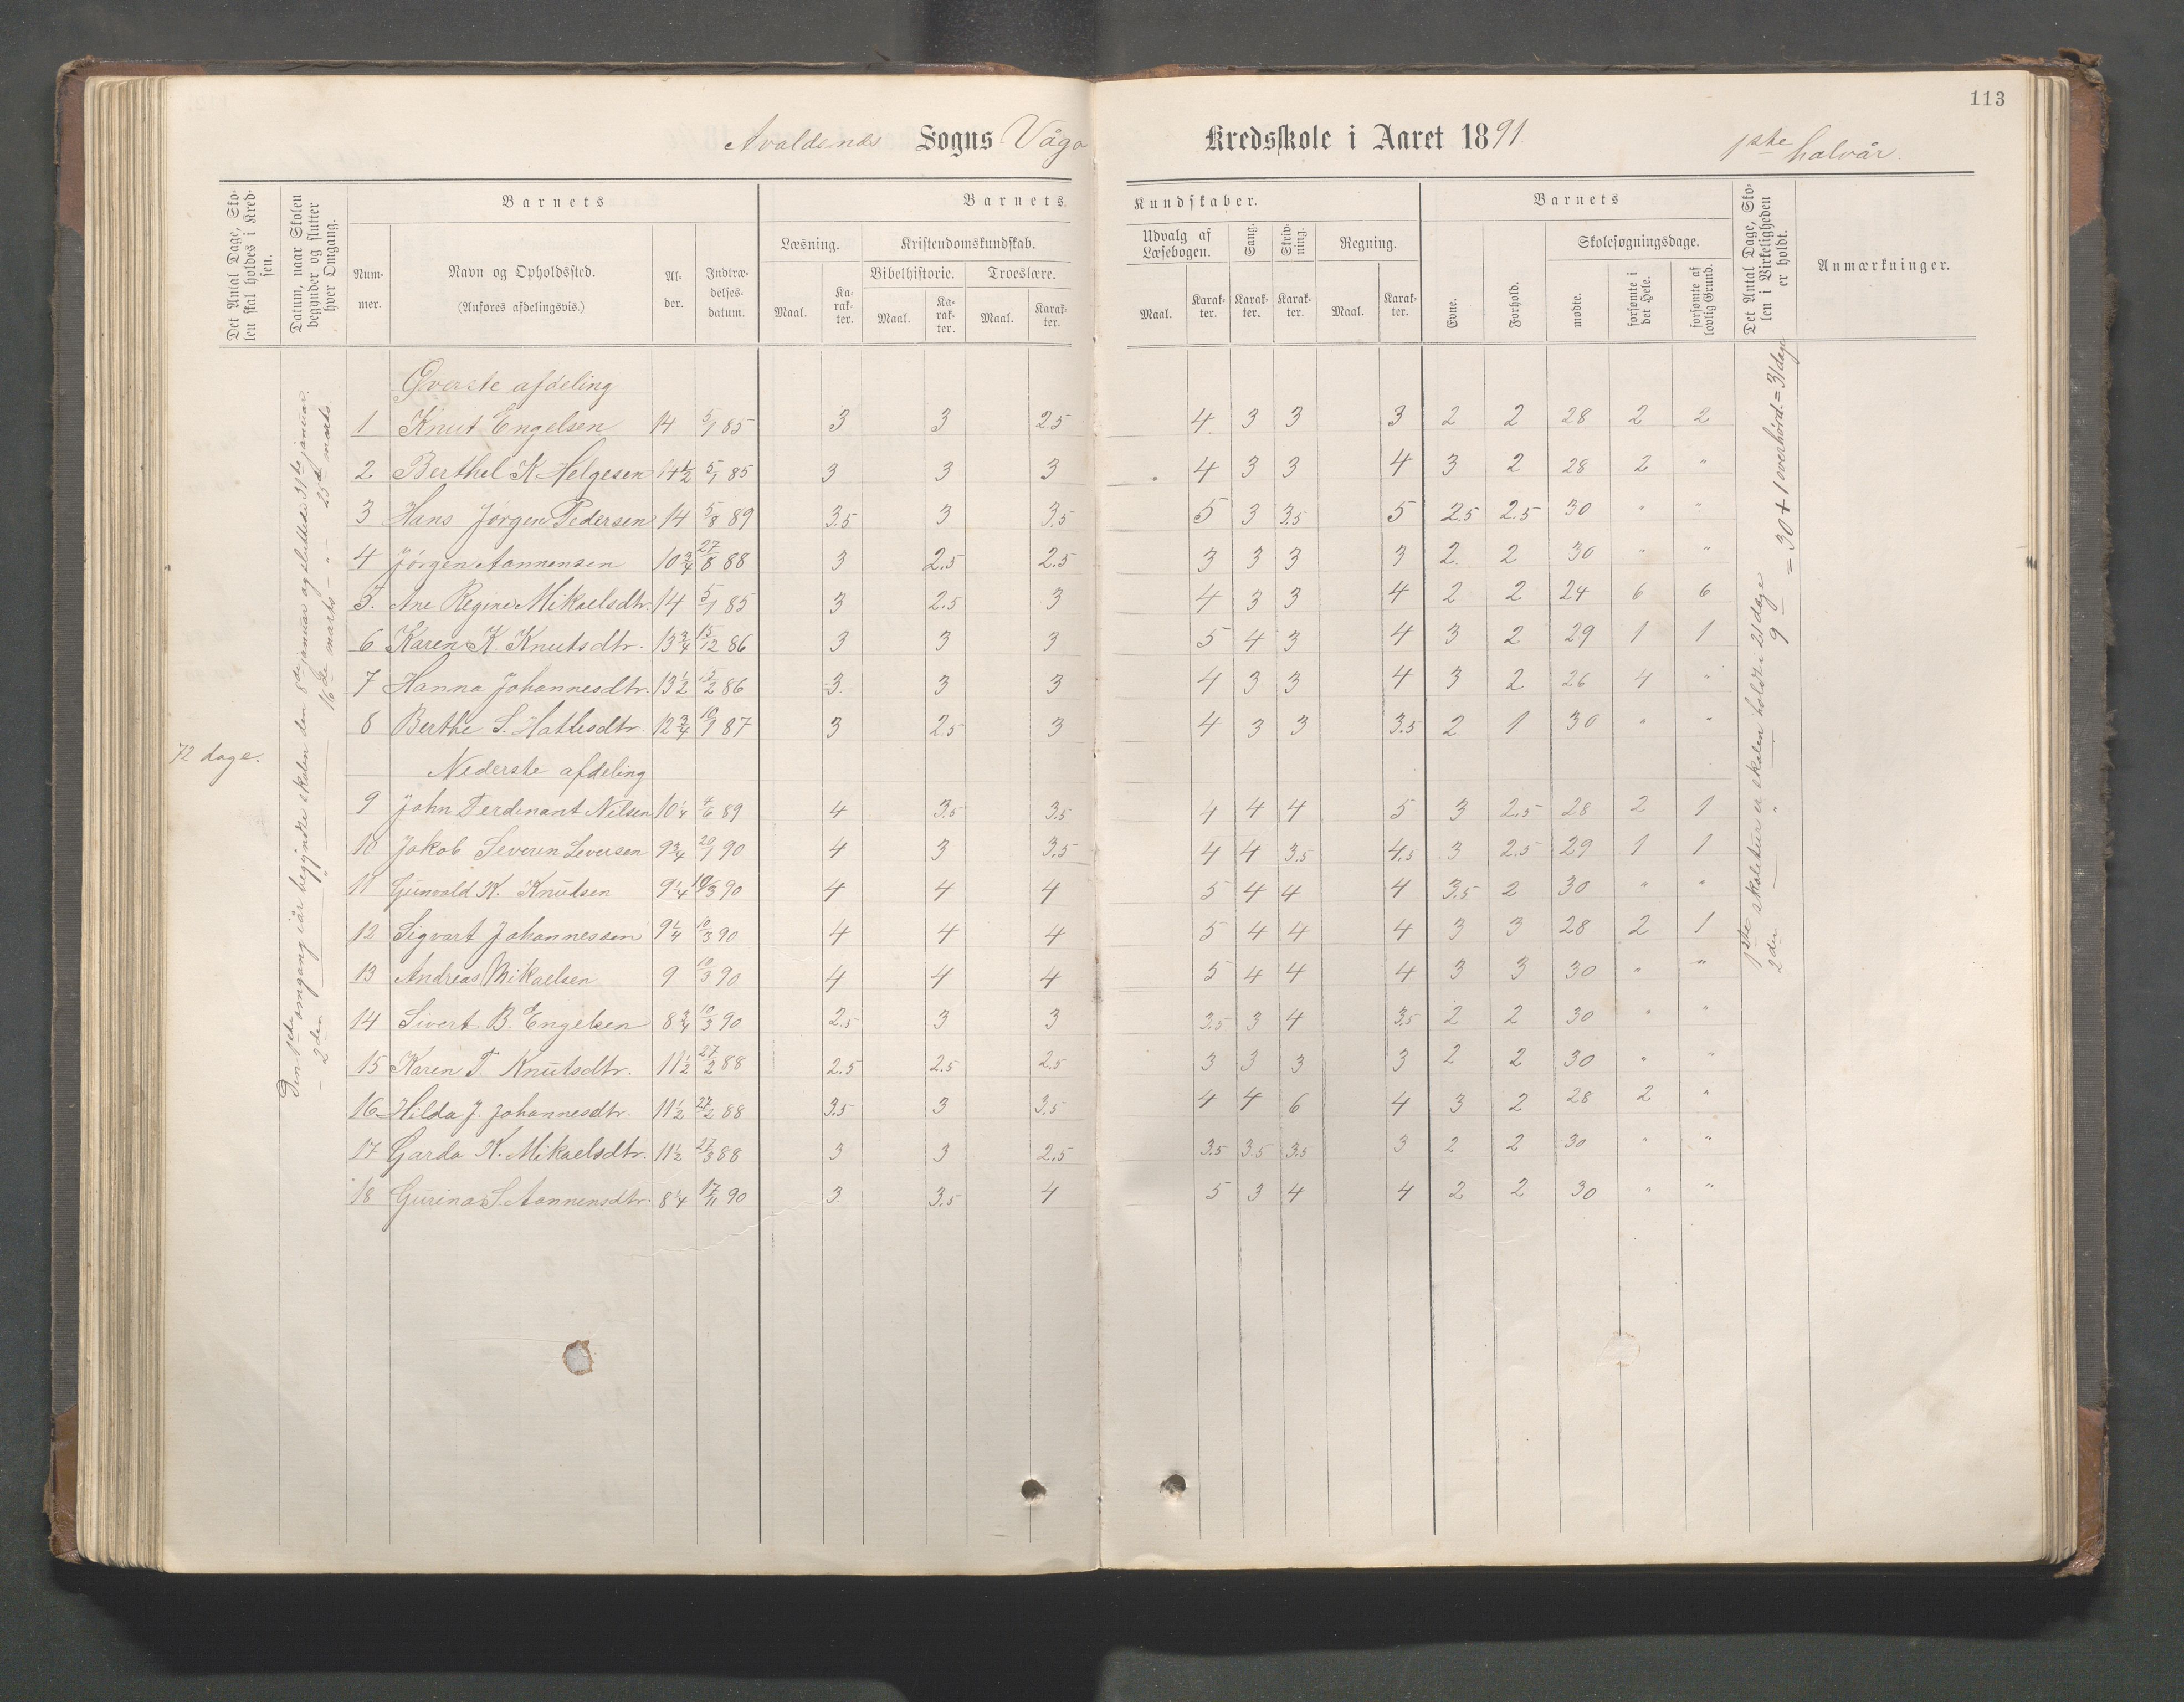 113
Avaldsnes Sogns Våga Kredsskole i Aaret 1891 1ste halvår.
Det Antal Dage, Skolen skal holdes i Kredsen.
Datum, naar Skolen begynder og slutter hver Omgang.
Barnets
Nummer.
Navn og Opholdssted.
(Anføres afdelingsvis.)
Alder.
Indtrædelsesdatum.
Barnets Kundskaber.
Læsning.
Maal. Karakter.
Kristendomskundskab.
Bibelhistorie. Troeslære.
Maal. Karakter. Maal. Karakter.
Udvalg af Læsebogen.
Maal. Karakter.
Sang. Karakter.
Skrivning. Karakter.
Regning.
Maal. Karakter.
Barnets
Evne. Forhold.
Skolesøgningsdage.
mødte. forsømte i det Hele. forsømte af lovlig Grund.
Det Antal Dage, Skolen i Virkeligheden er holdt.
Anmærkninger.
72 dage.
Den 1ste omgang iår begyndte skolen den 8de januar og sluttede 31te januar.
– 2den – " – 16de marts – " – 25de marts
Øverste afdeling
1 Knut Engelsen 14 5/1 85 3 3 2.5 4 3 3 3 2 2 28 2 2
2 Berthel K. Helgesen 14 1/2 5/1 85 3 3 3 4 3 3 4 3 2 28 2 "
3 Hans Jørgen Pedersen 14 5/8 89 3.5 3 3.5 5 3 3.5 5 2.5 2.5 30 " "
4 Jörgen Aannensen 10 3/4 27/8 88 3 2.5 2.5 3 3 3 3 2 2 30 " "
5. Ane Regine Mikaelsdtr. 14 5/1 85 3 2.5 3 4 3 3 4 2 2 24 6 6
6 Karen K. Knutsdtr. 13 3/4 15/12 86 3 3 3 5 4 3 4 3 2 29 1 1
7 Hanna Johannesdtr. 13 1/2 15/2 86 3. 3 3 4 3 3 4 3 2 26 4 "
8 Berthe S. Hatlesdtr. 12 3/4 10/1 87 3 2.5 3 4 3 3 3.5 2 1 30 " "
Nederste afdeling
9 John Ferdinant Nilsen 10 1/4 4/6 89 4 3.5 3.5 4 4 4 5 3 2.5 28 2 1
10 Jakob Severin Seversen 9 3/4 20/1 90 4 3 3.5 4 4 3.5 4.5 3 2.5 29 1 1
11 Gunvald K. Knudsen 9 1/4 10/3 90 4 4 4 5 4 4 4 3.5 2 30 " "
12 Sigvart Johannessen 9 1/4 10/3 90 4 4 4 5 4 4 4 3 3 28 2 1
13 Andreas Mikaelsen 9 10/3 90 4 4 4 5 4 4 4 3 3 30 " "
14 Sivert B. Engelsen 8 3/4 10/3 90 2.5 3 3 3.5 3 4 3.5 2 2 30 " "
15 Karen T. Knutsdtr. 11 1/2 27/2 88 2.5 2.5 2.5 3 3 3 3 2 2 30 " "
16 Hilda J. Johannesdtr. 11 1/2 27/2 88 3.5 3 3.5 4 4 6 4 3 2 28 2 "
17 Garda K. Mikaelsdtr. 11 1/2 27/3 88 3 3 2.5 3.5 3.5 3.5 3 2 2 30 " "
18 Gurina S. Aannensdtr. 8 1/4 17/11 90 3 3.5 4 5 3 4 4 2 2 30 " "
1ste skoletur er skolen holdt i 21 dage
2den – " – 9 – = 30 + 1 overhörd. = 31 dage